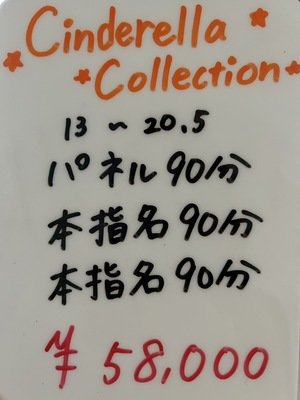 Cinderella
Collection
13～20.5
パネル90分
本指名90分
本指名90分
¥58,000